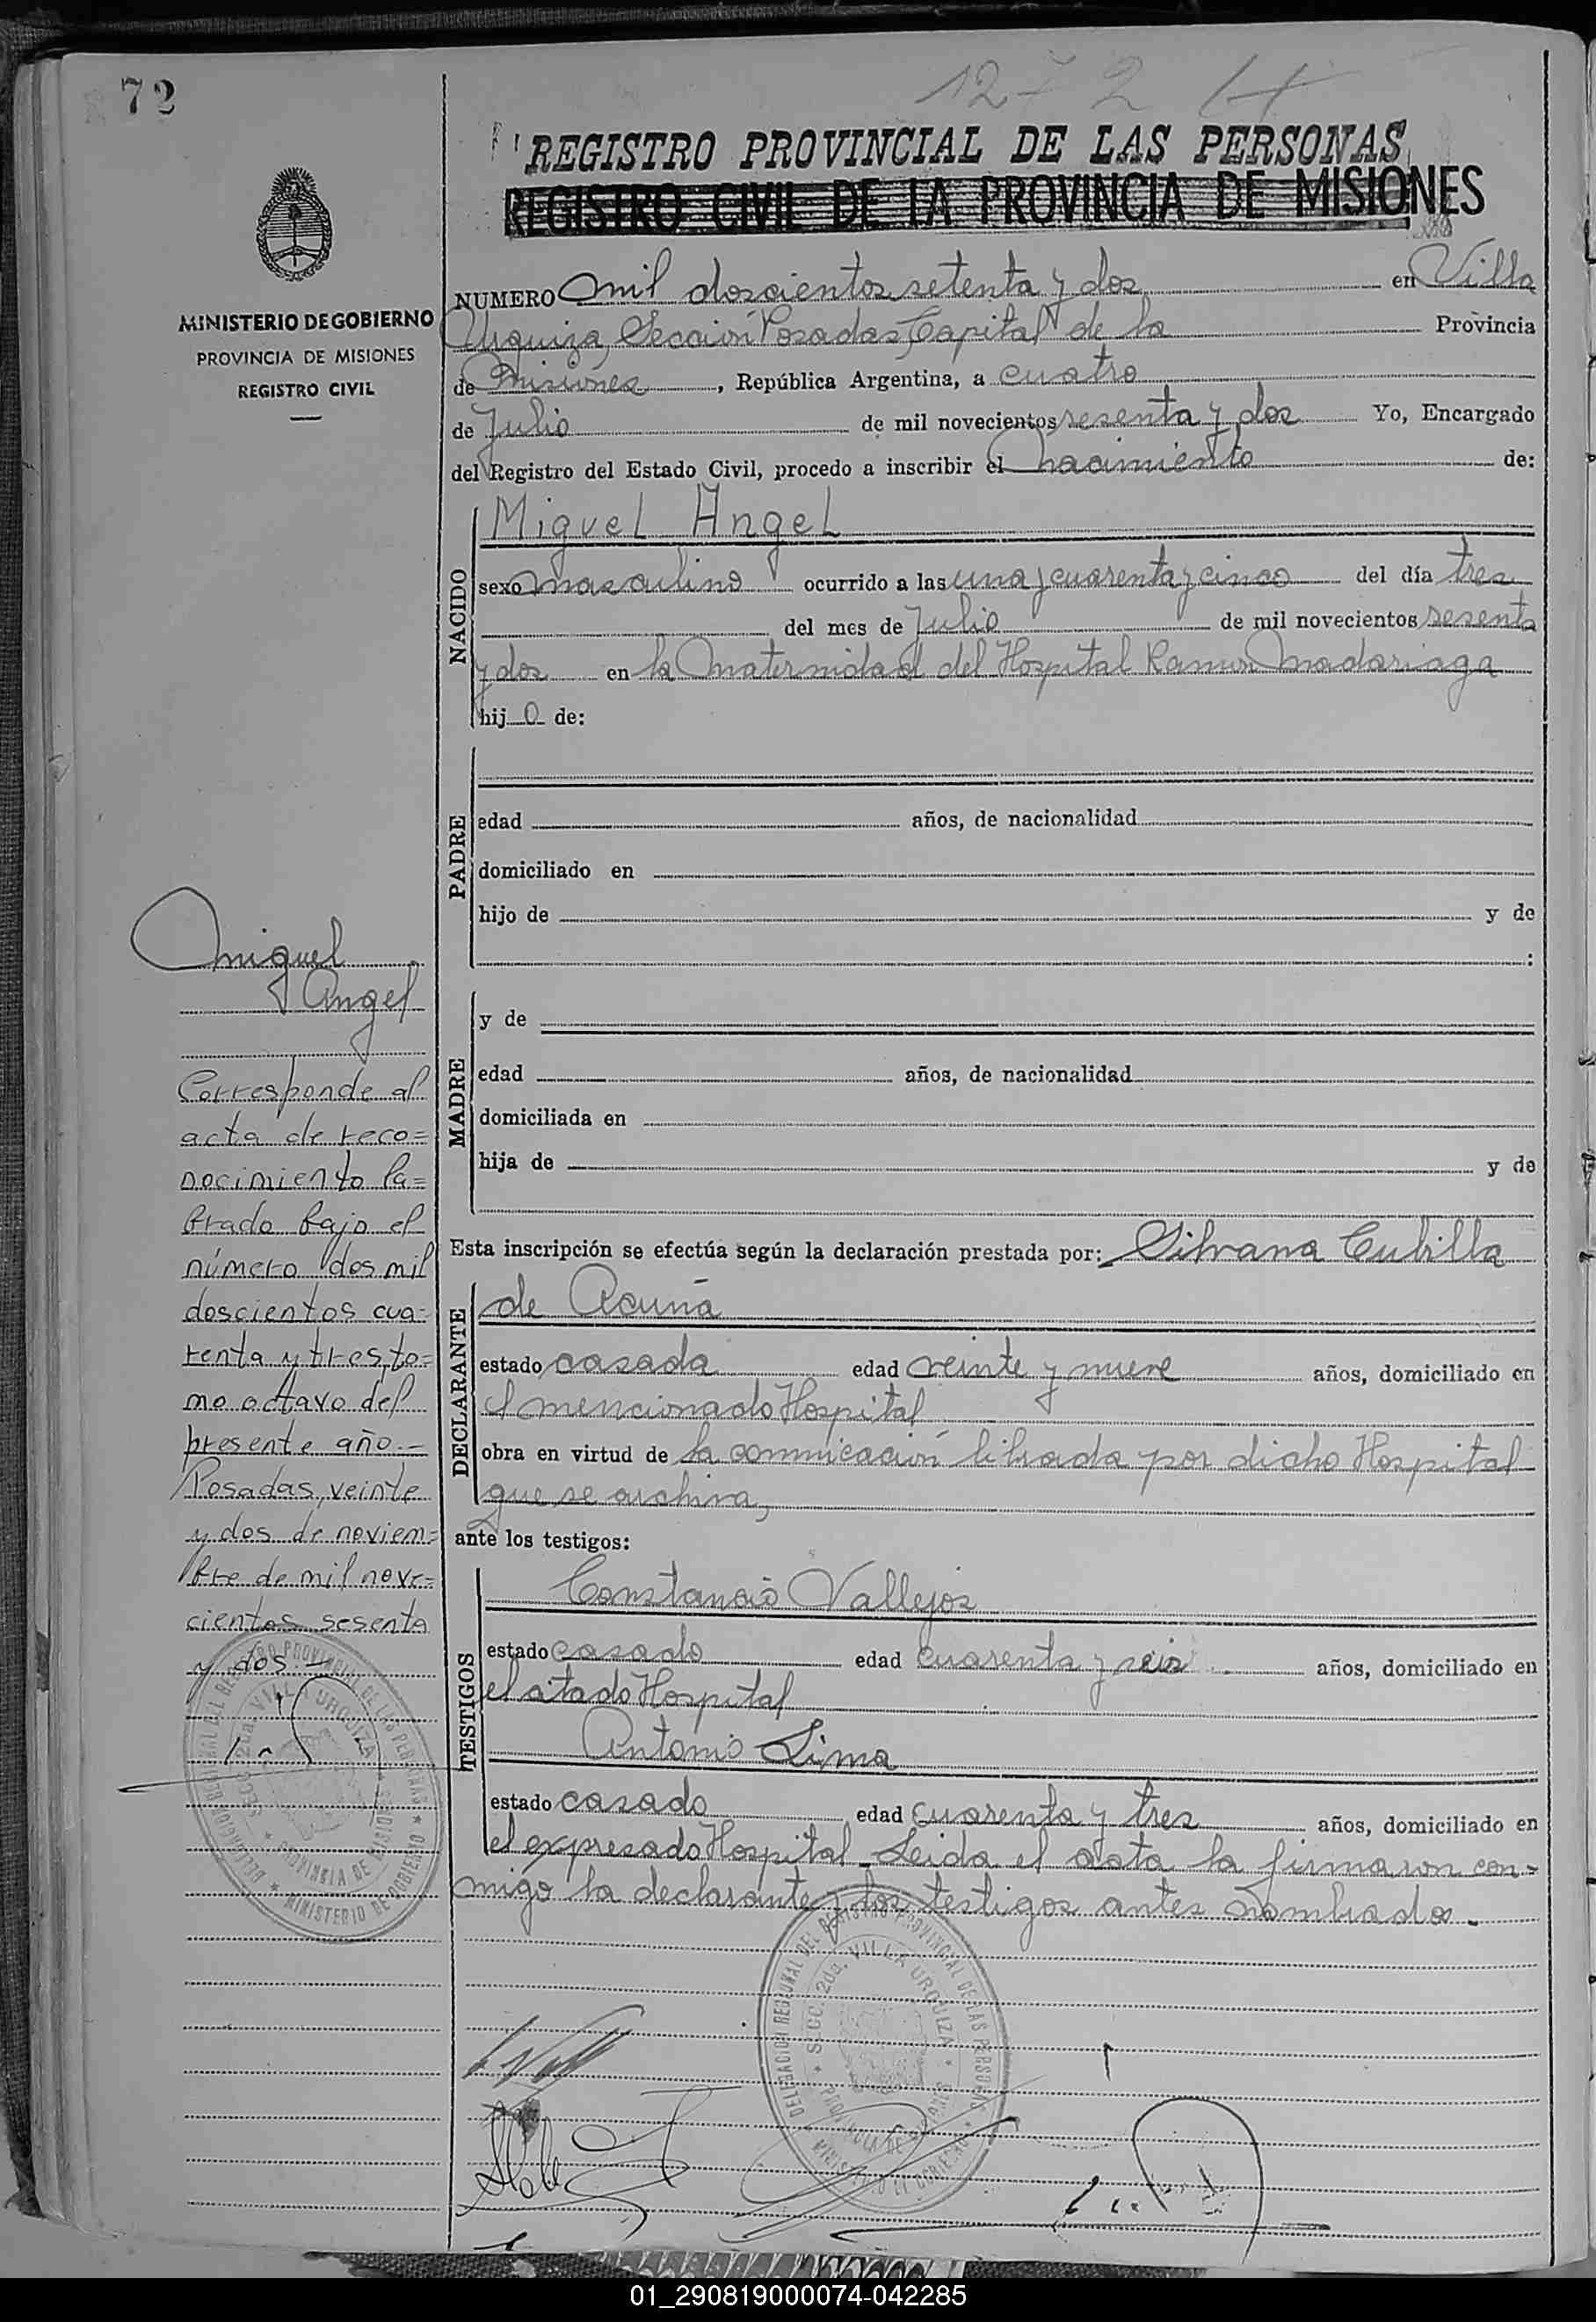 72
1272 H
REGISTRO PROVINCIAL DE LAS PERSONAS
REGISTRO CIVIL DE LA PROVINCIA DE MISIONES
MINISTERIO DE GOBIERNO
PROVINCIA DE MISIONES
REGISTRO CIVIL
NUMERO mil doscientos setenta y dos en Villa
Urquiza, Sección Posadas, Capital de la Provincia
de Misiones, República Argentina, a cuatro
de Julio de mil novecientos sesenta y dos Yo, Encargado
del Registro del Estado Civil, procedo a inscribir el nacimiento de:
NACIDO
Miguel Angel
sexo masculino ocurrido a las una y cuarenta y cinco del día tres
del mes de Julio de mil novecientos sesenta
y dos en la Maternidad del Hospital Ramon Madariaga
hij o de:
PADRE
edad años, de nacionalidad
domiciliado en
hijo de y de
:
MADRE
y de
edad años, de nacionalidad
domiciliada en
hija de y de
Esta inscripción se efectúa según la declaración prestada por: Silvana Cubilla
DECLARANTE
de Acuña
estado casada edad veinte y nueve años, domiciliado en
el mencionado Hospital
obra en virtud de la comunicación librada por dicho Hospital
que se archiva,
ante los testigos:
TESTIGOS
Constancio Vallejos
estado casado edad cuarenta y seis años, domiciliado en
el citado Hospital
Antonio Lima
estado casado edad cuarenta y tres años, domiciliado en
el expresado Hospital. Leida el acta la firmaron con=
migo la declarante y los testigos antes nombrados.
Miguel
Angel
Corresponde al
acta de reco=
nocimiento la=
brado bajo el
número dos mil
doscientos cua=
renta y tres, to=
mo octavo del
presente año.-
Posadas, veinte
y dos de noviem=
bre de mil nove=
cientos sesenta
y dos.-
DELEGACION REGIONAL DEL REGISTRO PROVINCIAL DE LAS PERSONAS
SECC. 2da. VILLA URQUIZA
PROVINCIA DE MISIONES
MINISTERIO DE GOBIERNO
DELEGACION REGIONAL DEL REGISTRO PROVINCIAL DE LAS PERSONAS
SECC. 2da. VILLA URQUIZA
PROVINCIA DE MISIONES
MINISTERIO DE GOBIERNO
01_290819000074-042285